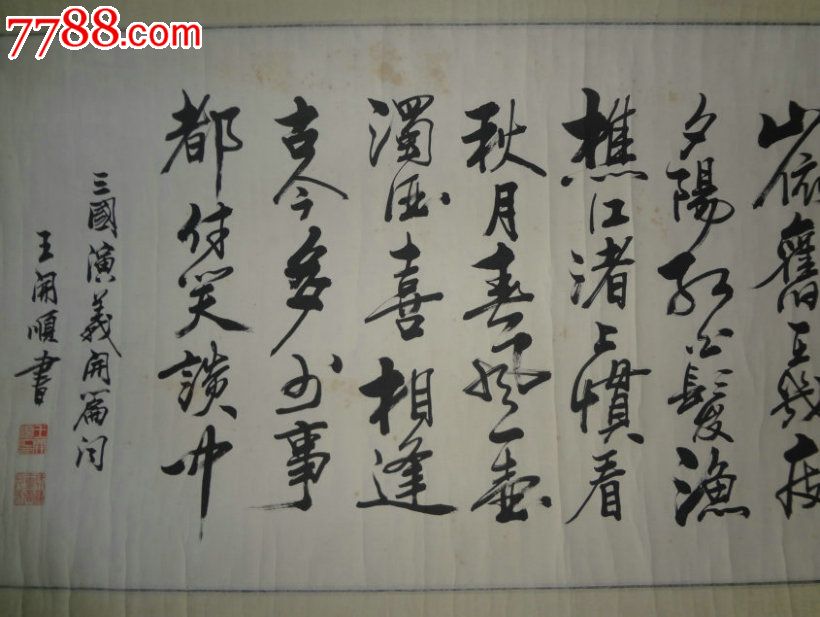 7788.com
山依舊在幾度
夕陽紅白髮漁
樵江渚上慣看
秋月春風一壺
濁酒喜相逢
古今多少事
都付笑談中
三國演義開篇词
王開順書